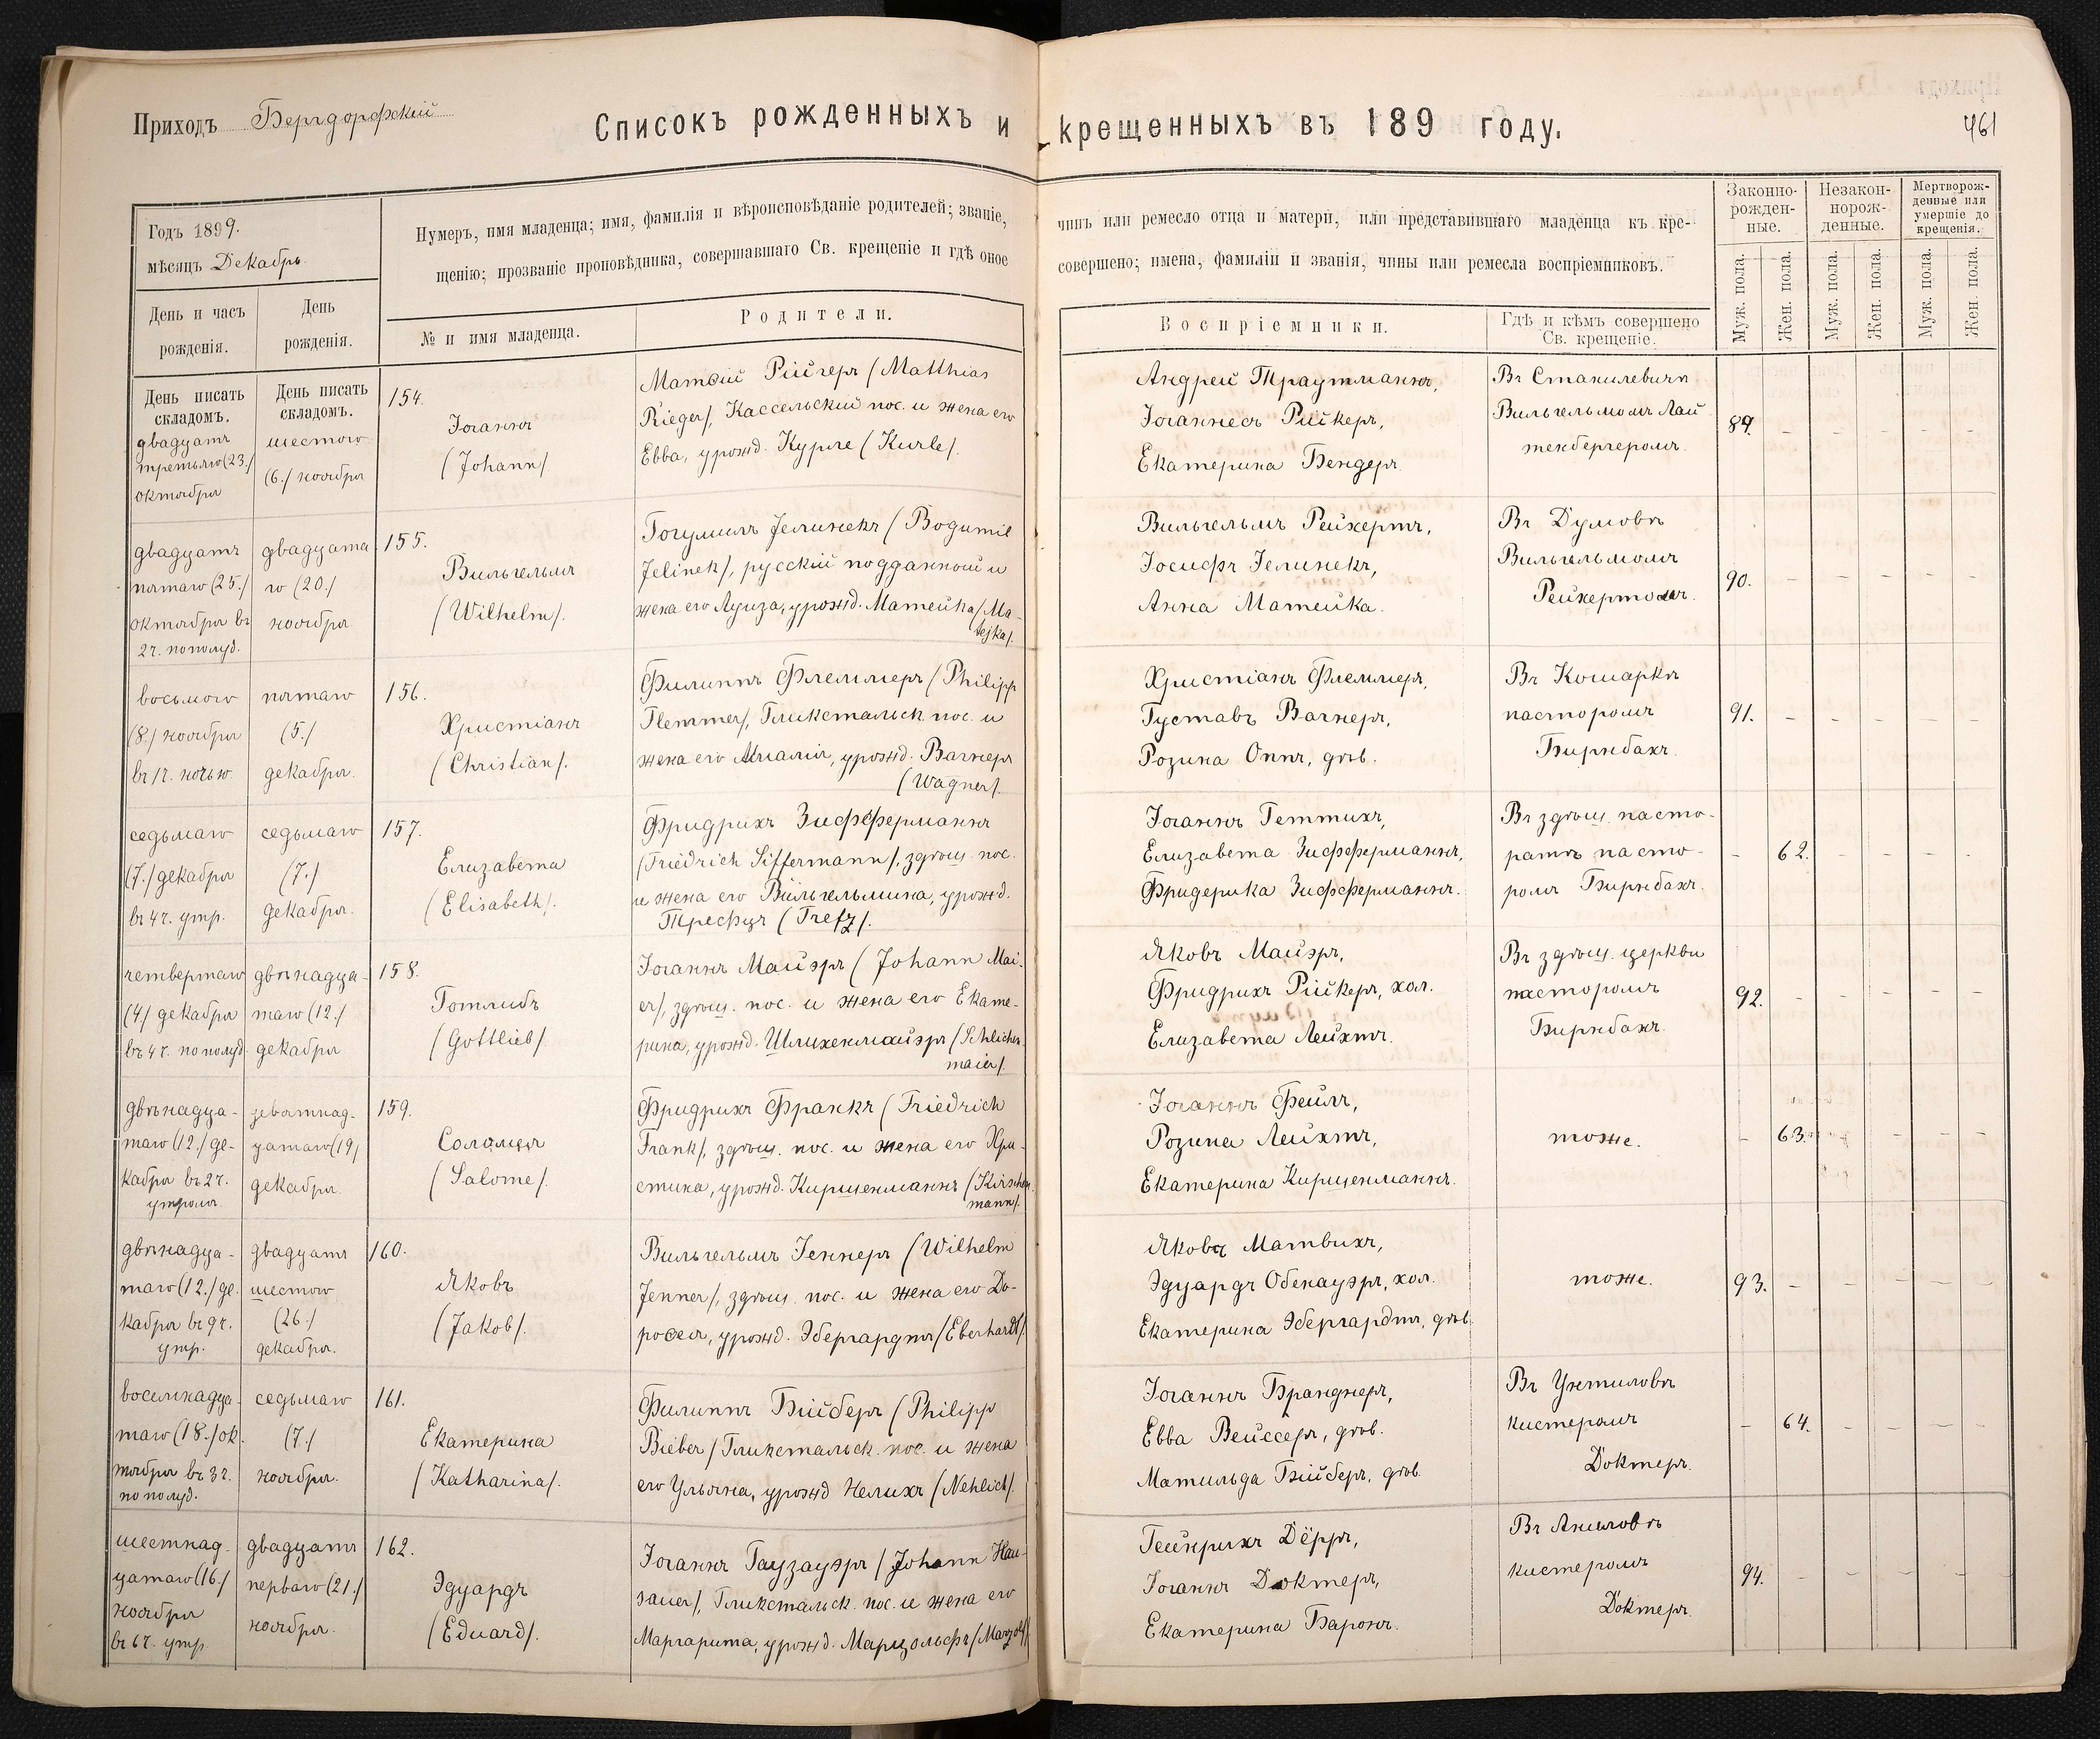 Приходъ Бергдорфскій
Списокъ рожденныхъ и крещенныхъ въ 189 году.
461
Годъ 1899.
мѣсяцъ Декабрь.
Нумеръ, имя младенца; имя, фамилія и вѣроисповѣданіе родителей; званіе, чинъ или ремесло отца и матери, или представившаго младенца къ кре-
щенію; прозваніе проповѣдника, совершавшаго Св. крещеніе и гдѣ оное совершено; имена, фамиліи и званія, чины или ремесла воспріемниковъ.
Законно-
рожден-
ные.
Незакон-
норож-
денные.
Мертворож-
денные или
умершіе до
крещенія.
День и часъ
рожденія.
День
рожденія.
№ и имя младенца.
Родители.
Воспріемники.
Гдѣ и кѣмъ совершено
Св. крещеніе.
Муж. пола.
Жен. пола.
Муж. пола.
Жен. пола.
Муж. пола.
Жен. пола.
День писать
складомъ.
День писать
складомъ.
двадцать
третьяго (23./
октября
шестого
(6./ ноября
154.
Іоганнъ
(Johann/
Матѳій Рійгеръ (Matthias
Rieger/, Кассельскій пос. и жена его
Евва, урожд. Курле (Kurle/.
Андрей Траутманнъ,
Іоганнесъ Рійкеръ,
Екатерина Бендеръ.
Въ Станилевичи
Вильгельмомъ Лай
тенбергеромъ.
89.
двадцать
пятаго (25./
октября въ
2 ч. пополуд.
двадцата
го (20./
ноября.
155.
Вильгельмъ
(Wilhelm/.
Богумилъ Јелинекъ (Bogumil
Jelinek/, русскій подданный и
жена его Луиза, урожд. Матейка (Ma-
tejka/.
Вильгельмъ Рейхертъ,
Іосифъ Іелинекъ,
Анна Матейка.
Въ Думовѣ
Вильгельмомъ
Рейхертомъ.
90.
восьмого
(8./ ноября
въ 1 ч. ночью
пятаго
(5./
декабря.
156.
Христіанъ
(Christian/.
Филиппъ Флеммеръ (Philipp
Flemmer/, Гликстальск. пос. и
жена его Амалія, урожд. Вагнеръ
(Wagner/.
Христіанъ Флеммеръ,
Густавъ Вагнеръ,
Розина Оппъ, дѣв.
Въ Кошаркѣ
пасторомъ
Бирнбахъ.
91.
седьмаго
(7./ декабря
въ 4 ч. утр.
седьмаго
(7./
декабря.
157.
Елизавета
(Elisabeth/.
Фридрихъ Зифферманнъ
(Friedrich Siffermann/, здѣш. пос.
и жена его Вильгельмина, урожд.
Трефцъ (Trefz/.
Іоганнъ Геттихъ,
Елизавета Зифферманнъ,
Фридерика Зифферманнъ.
Въ здѣш. пасто-
ратѣ пасто-
ромъ Бирнбахъ.
62.
четвертаго
(4/ декабря
въ 4 ч. по полуд.
двѣнадца-
таго (12./
декабря
158.
Готлибъ
(Gottlieb/
Іоганнъ Майэръ (Johann Mai-
er/, здѣш. пос. и жена его Екате-
рина, урожд. Шлихенмайэръ (Schlichen
maier/.
Яковъ Майэръ,
Фридрихъ Рійкеръ, хол.
Елизавета Лейхтъ.
Въ здѣш. церкви
пасторомъ
Бирнбахъ.
92.
двѣнадца-
таго (12./ де-
кабря въ 2 ч.
утромъ
девятнад-
цатаго (19/
декабря.
159.
Саломея
(Salome/.
Фридрихъ Франкъ (Friedrich
Frank/, здѣш. пос. и жена его Хри-
стина, урожд. Киршенманнъ (Kirschen-
mann/.
Іоганнъ Фейлъ,
Розина Лейхтъ,
Екатерина Киршенманнъ.
тоже.
63.
двѣнадца-
таго (12./ де-
кабря въ 9 ч.
утр.
двадцать
шестого
(26./
декабря.
160.
Яковъ
(Jakob/.
Вильгельмъ Јеннеръ (Wilhelm
Jenner/, здѣш. пос. и жена его До-
роѳея, урожд. Эбергардтъ (Eberhardt/.
Яковъ Матвихъ,
Эдуардъ Обенауэръ, хол.
Екатерина Эбергардтъ, дѣв.
тоже.
93.
восемнадца
таго (18./ ок-
тября въ 3 ч.
по полуд.
седьмаго
(7./
ноября.
161.
Екатерина
(Katharina/.
Филиппъ Бійберъ (Philipp
Bieber/ Гликстальск. пос. и жена
его Ульяна, урожд Нелихъ (Nehlich/.
Іоганнъ Бранднеръ,
Евва Вейссеръ, дѣв.
Матильда Бійберъ, дѣв.
Въ Унтиловѣ
кистеромъ
Доктеръ.
64.
шестнад-
цатаго (16./
ноября
въ 6 ч. утр.
двадцать
перваго (21./
ноября.
162.
Эдуардъ
(Eduard/.
Іоганнъ Гаузауэръ (Johann Hau-
sauer/, Гликстальск. пос. и жена его
Маргарита, урожд. Марцольфъ (Marzolf/
Гейнрихъ Дёрръ,
Іоганнъ Доктеръ,
Екатерина Баронъ.
кистеромъ
Доктеръ.
94.